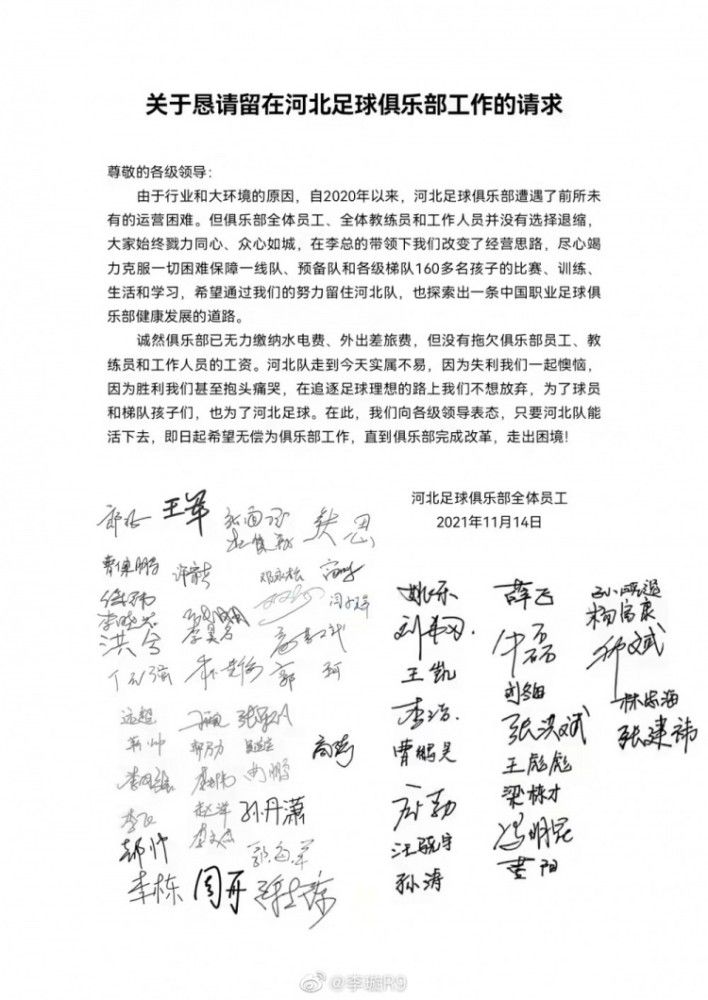 关于恳请留在河北足球俱乐部工作的请求
尊敬的各级领导：
由于行业和大环境的原因，自2020年以来，河北足球俱乐部遭遇了前所未
有的运营困难。但俱乐部全体员工、全体教练员和工作人员并没有选择退缩，
大家始终戮力同心、众心如城，在李总的带领下我们改变了经营思路，尽心竭
力克服一切困难保障一线队、预备队和各级梯队160多名孩子的比赛、训练、
生活和学习，希望通过我们的努力留住河北队，也探索出一条中国职业足球俱
乐部健康发展的道路。
诚然俱乐部已无力缴纳水电费、外出差旅费，但没有拖欠俱乐部员工、教
练员和工作人员的工资。河北队走到今天实属不易，因为失利我们一起懊恼，
因为胜利我们甚至抱头痛哭，在追逐足球理想的路上我们不想放弃，为了球员
和梯队孩子们，也为了河北足球。在此，我们向各级领导表态，只要河北队能
活下去，即日起希望无偿为俱乐部工作，直到俱乐部完成改革，走出困境！
河北足球俱乐部全体员工
2021年11月14日
王军
曹保鹏
洪兮
郭
珂
姚乐
薛飞
杨富康
王凯
李浩
张洪斌
林忠海
张建祎
曹鹏昊
王彪彪
梁栋才
汪晓宇
冯明昆
孙涛
高嵩
远超
赵洋
孙丹潇
郝帅
李栋
周开
@李璇R9